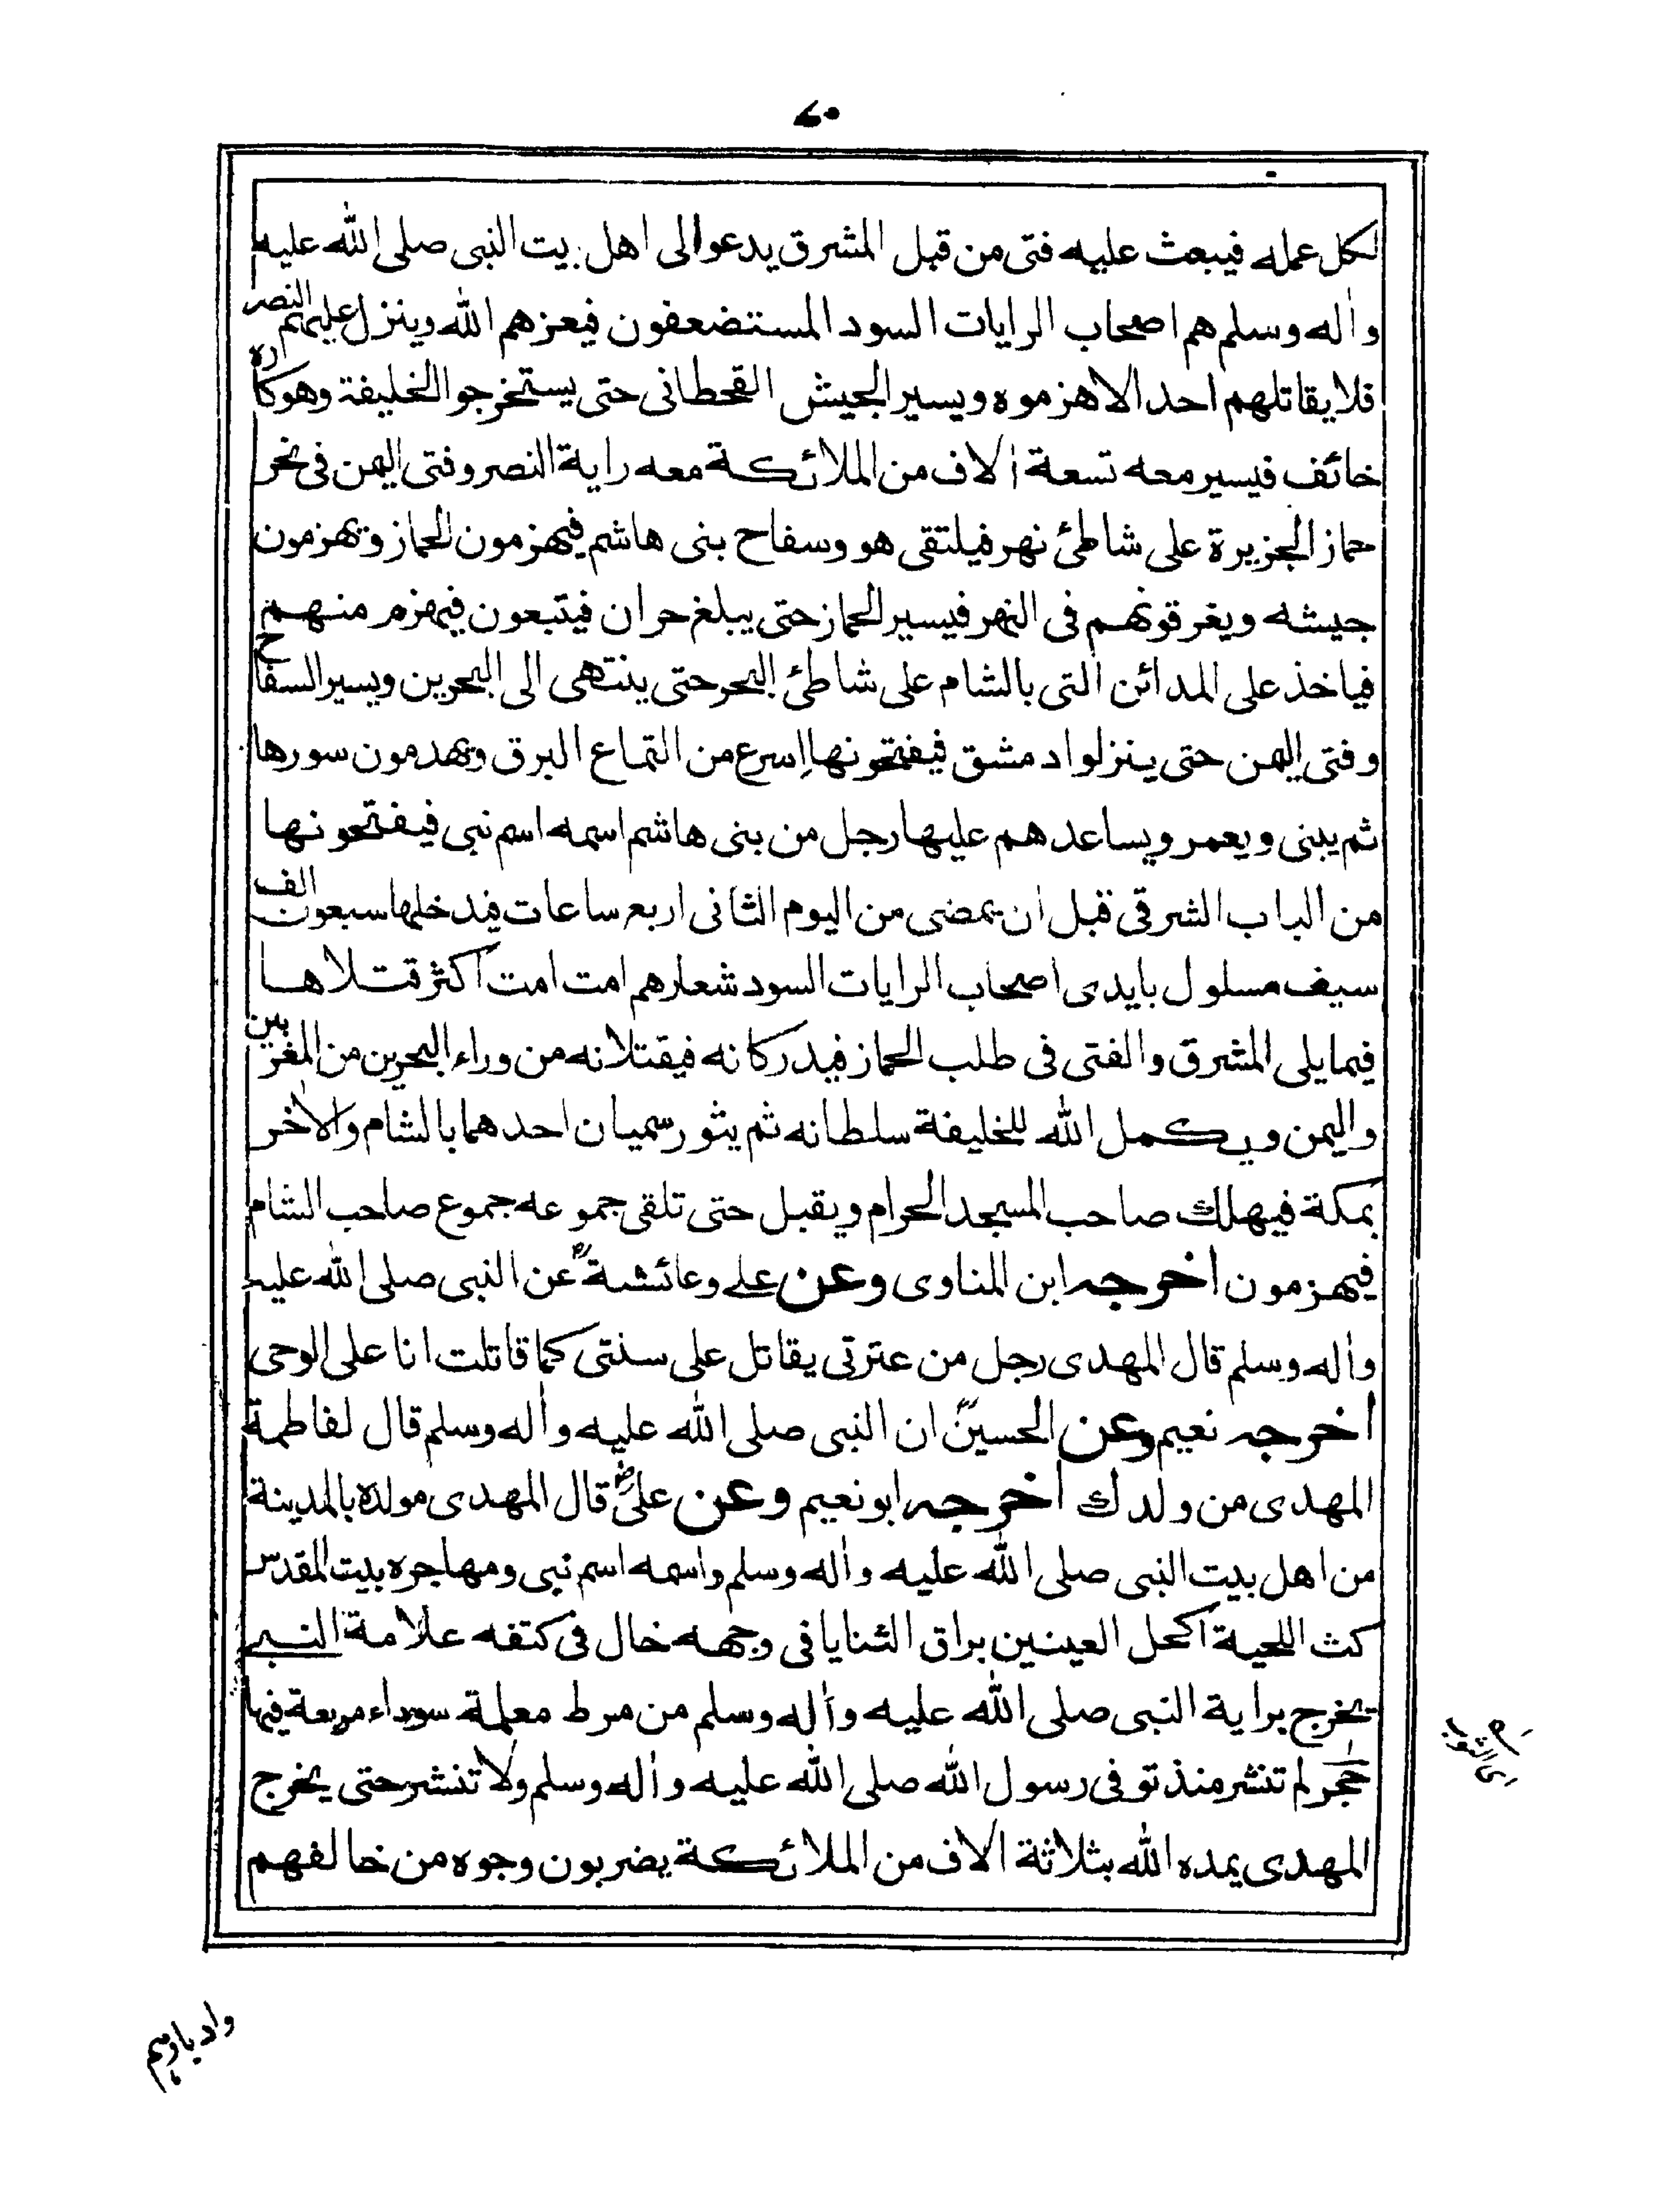 ٦٠
لكل عمله فيبعث عليه فتى من قبل المشرق يدعوا الى اهل بيت النبى صلى الله عليه
واٰله وسلم هم اصحاب الرايات السود المستضعفون فيعزهم الله وينزل عليهم النصر
فلا يقاتلهم احد الا هزموه ويسير الجيش القحطانى حتى يستخرجوا الخليفة وهو كاره
خائف فيسير معه تسعة اٰلاف من الملائكة معه راية النصر وفتى اليمن فى نحر
حماز الجزيرة على شاطئ نهر فيلتقى هو وسفاح بنى هاشم فيهزمون الحماز ويهزمون
جيشه ويغرقونهم فى النهر فيسير الحماز حتى يبلغ حران فيتبعون فيهزم منهم
فياخذ على المدائن التى بالشام على شاطئ البحر حتى ينتهى الى البحرين ويسير السفاح
وفتى اليمن حتى ينزلوا دمشق فيفتحونها اسرع من التماع البرق ويهدمون سورها
ثم يبنى ويعمر ويساعدهم عليها رجل من بنى هاشم اسمه اسم نبى فيفتحونها
من الباب الشرقى قبل ان يمضى من اليوم الثانى اربع ساعات فيدخلها سبعون الف
سيف مسلول بايدى اصحاب الرايات السود شعارهم امت امت اكثر قتلاها
فيما يلى المشرق والفتى فى طلب الحماز فيدركانه فيقتلانه من وراء البحرين من المغربين
واليمن ويكمل الله للخليفة سلطانه ثم يثور سميان احدهما بالشام والاٰخر
بمكة فيهلك صاحب المسجد الحرام ويقبل حتى تلقى جموعه جموع صاحب الشام
فيهزمون اخرجه ابن المناوى وعن على وعائشة عن النبى صلى الله عليه
واٰله وسلم قال المهدى رجل من عترتى يقاتل على سنتى كما قاتلت انا على الوحى
اخرجه نعيم وعن الحسين ان النبى صلى الله عليه واٰله وسلم قال لفاطمة
المهدى من ولدك اخرجه ابو نعيم وعن على قال المهدى مولده بالمدينة
من اهل بيت النبى صلى الله عليه واٰله وسلم واسمه اسم نبى ومهاجره بيت المقدس
كث اللحية اكحل العينين براق الثنايا فى وجهه خال فى كتفه علامة النبى
يخرج براية النبى صلى الله عليه واٰله وسلم من مرط معلمة سوداء مربعة فيها
حجر لم تنشر منذ توفى رسول الله صلى الله عليه واٰله وسلم ولا تنشر حتى يخرج
المهدى يمده الله بثلاثة اٰلاف من الملائكة يضربون وجوه من خالفهم
وادبارهم